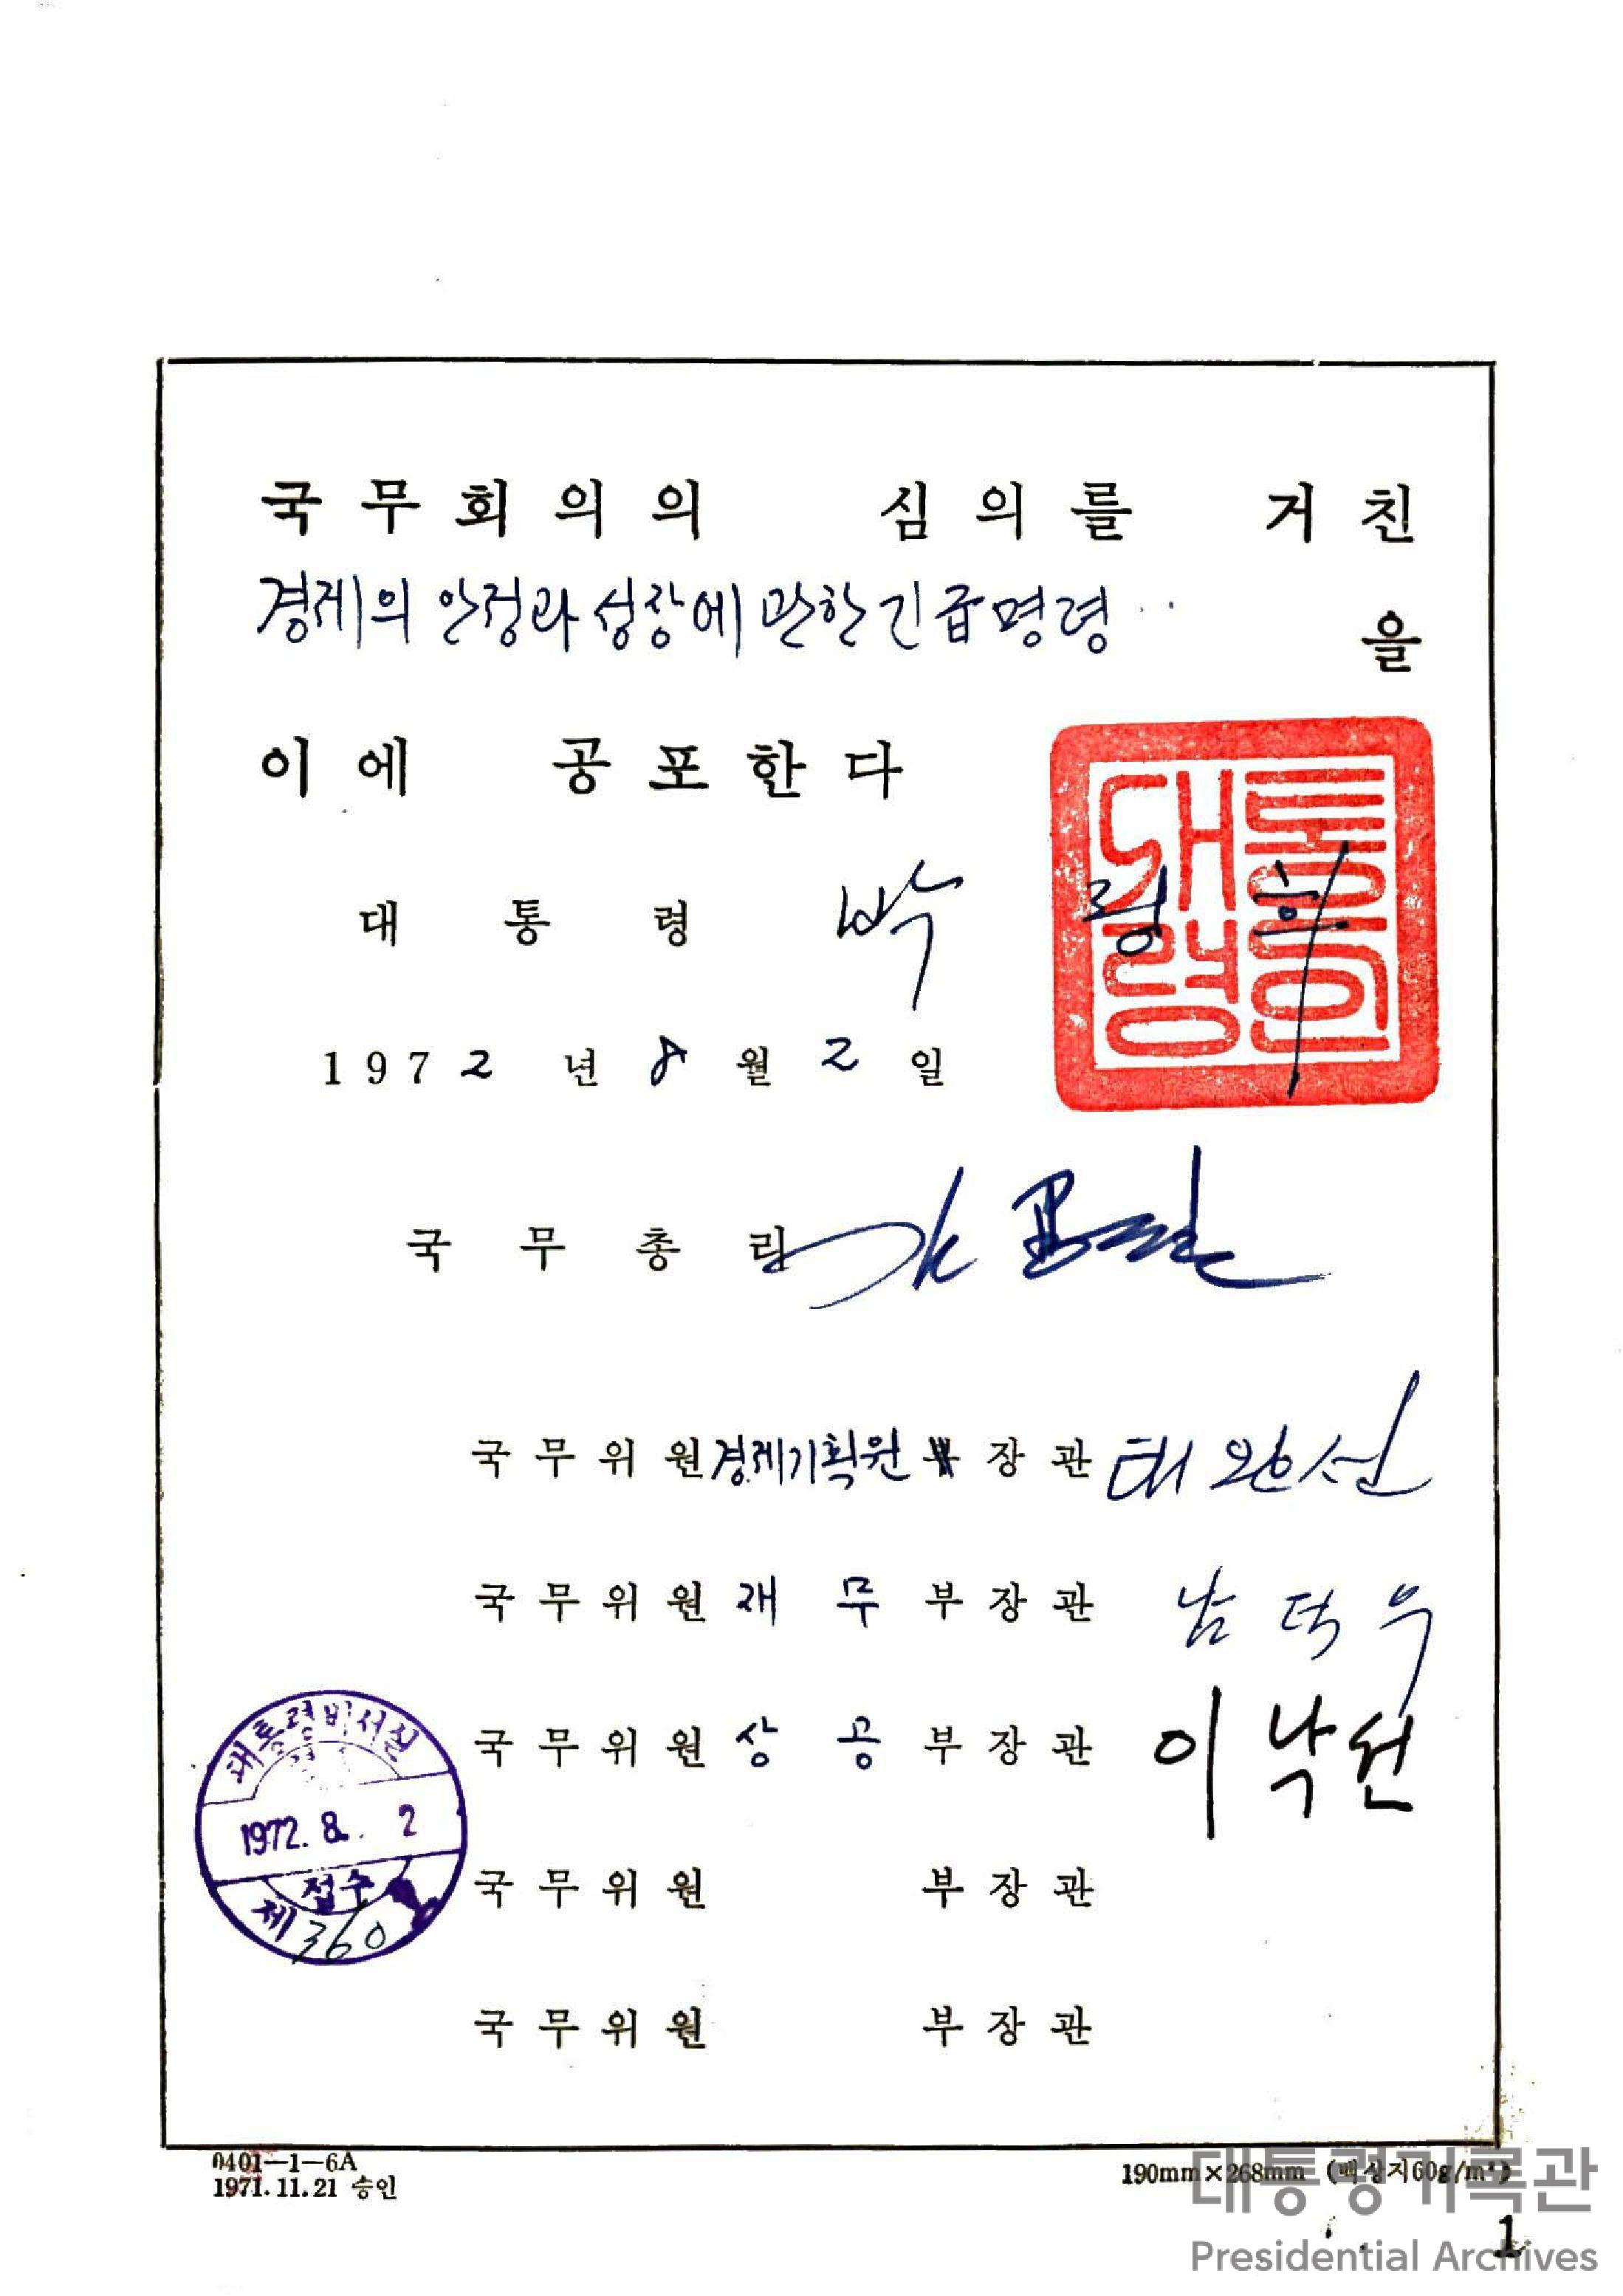 국무회의의 심의를 거친
경제의 안정과 성장에 관한 긴급명령 을
이에 공포한다
대통령 박정희
대통령의인
1972년 8월 2일
국무총리
국무위원 경제기획원 장관 태완선
국무위원 재무부장관 남덕우
국무위원 상공부장관 이낙선
대통령비서실
1972. 8. 2
접수
제 360
국무위원 부장관
국무위원 부장관
0401-1-6A
1971.11.21 승인
190mm×268mm (백상지60g/m²)
대통령기록관
Presidential Archives
1